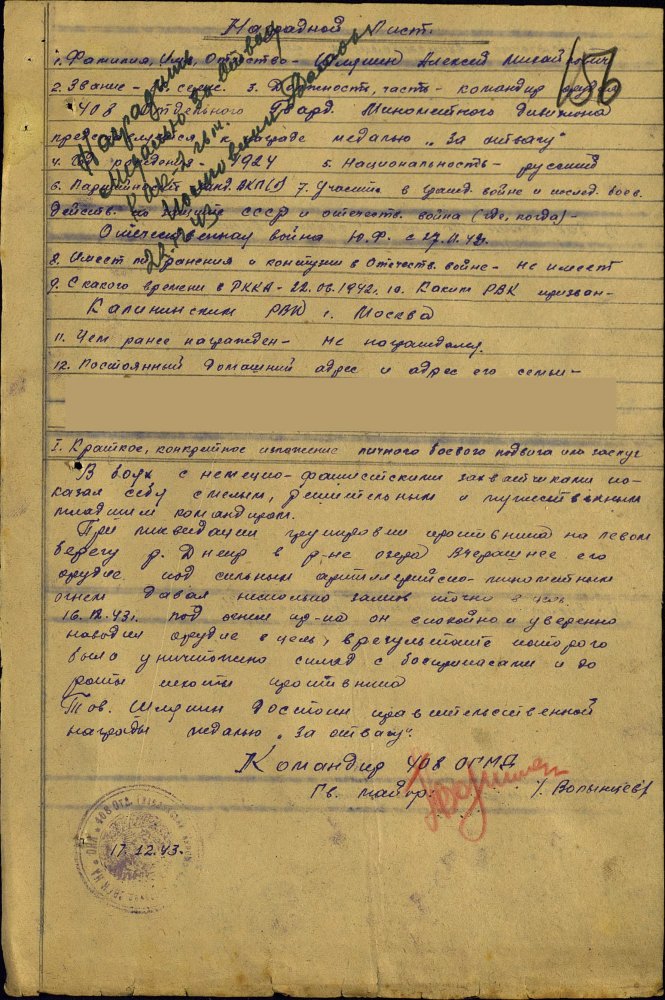 Наградной лист.
1. Фамилия, Имя, Отчество - Шмякин Алексей Михайлович
2. Звание - серж. 3. Должность, часть - командир орудия
408 Отдельного Гвард. Миномётного дивизиона
представляется к награде медалью „За отвагу"
4. рождения - 1924 5. Национальность - русский
6. Партийность - канд. ВКП(б) 7. Участие в гражд. войне и послед. боев.
действ. по защите СССР и отечеств. война (где, когда) -
Отечественная война Ю.Ф. с
8. Имеет ли ранения и контузии в Отечеств. войне - не имеет
9. С какого времени в РККА - 22.06.1942. 10. Каким РВК призван -
Калининским РВК г. Москва
11. Чем ранее награжден - не награждался.
12. Постоянный домашний адрес и адрес его семьи -
I. Краткое, конкретное изложение личного боевого подвига или заслуг
В боях с немецко-фашистскими захватчиками по-
казал себя смелым, решительным и мужественным
младшим командиром.
При ликвидации группировки противника на левом
берегу р. Днепр в р-не озера Вчерашнее его
орудие под сильным артиллерийско-миномётным
огнем давал несколько залпов точно в цель.
16.12.43г. под огнем пр-ка он спокойно и уверенно
наводил орудие в цель, в результате которого
было уничтожено склад с боеприпасами и до
роты пехоты противника
Тов. Шмякин достоин правительственной
награды медалью „За отвагу".
Командир 408 ОГМД
Гв. майор: /. Волынцев/
17.12.43.
Наградить
медалью За отвагу
156